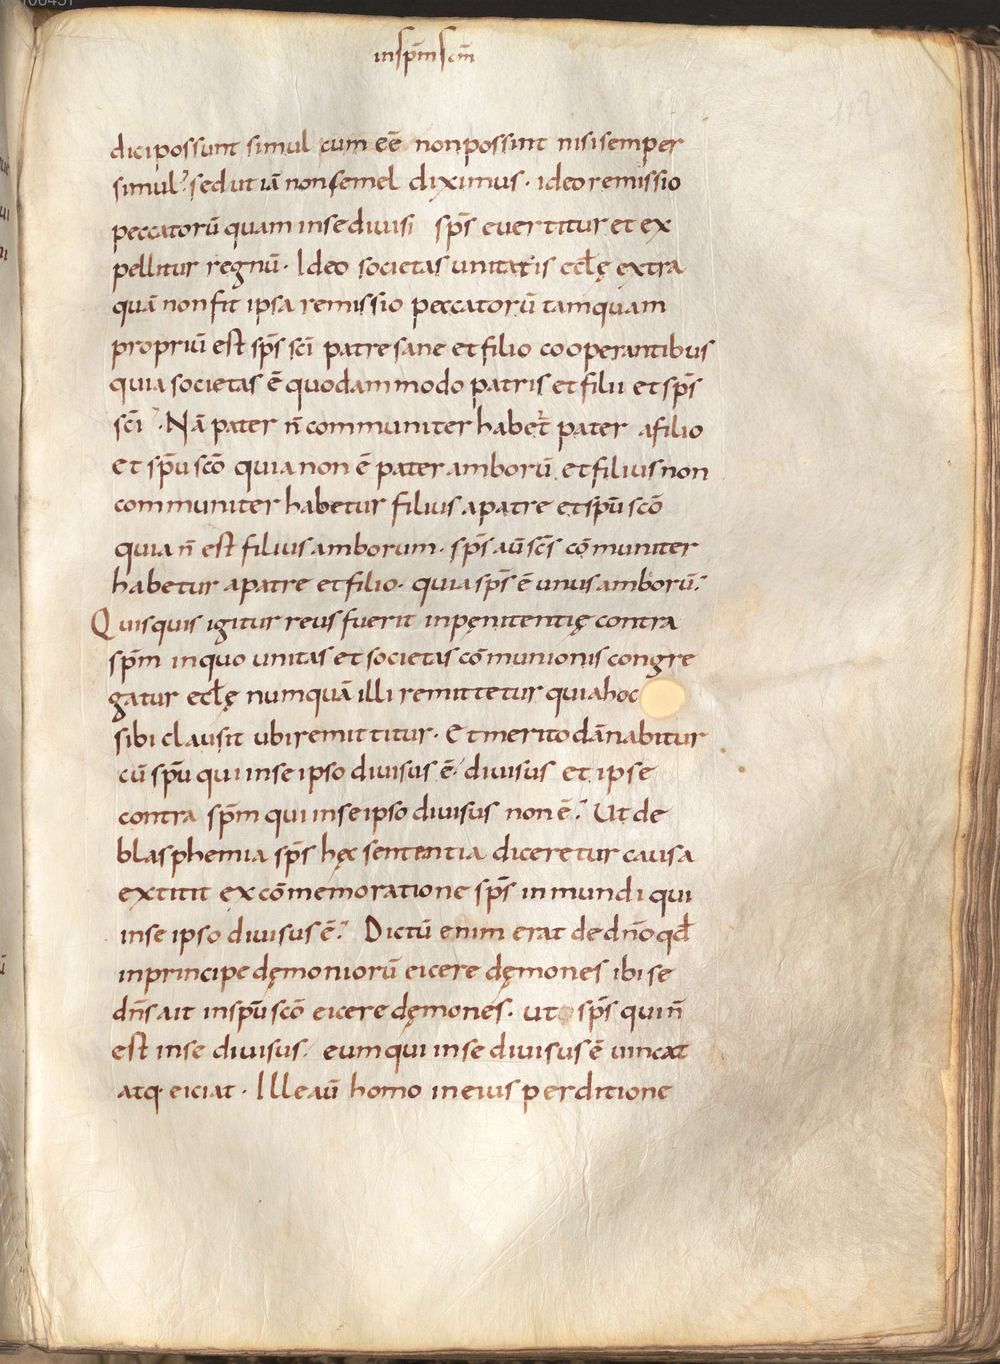 in sp̄m sc̄m
dici possunt simul cum eē non possint nisi semper
simul? sed ut iā non semel diximus · ideo remissio
peccatorū quam in se diuisi sp̄s euertitur et ex
pellitur regnū · Ideo societas unitatis eccl̄ę extra
quā non fit ipsa remissio peccatorū tamquam
propriū est sp̄s sc̄i patre sane et filio cooperantibus
quia societas ē quodammodo patris et filii et sp̄s
sc̄i · Nā pater n̄ communiter habet̄ pater a filio
et sp̄u sc̄o quia non ē pater amborū et filius non
communiter habetur filius a patre et sp̄u sc̄o
quia n̄ est filius amborum · sp̄s aū sc̄s cōmuniter
habetur a patre et filio · quia sp̄s ē unus amborū ·
Quisquis igitur reus fuerit inpęnitentię contra
sp̄m in quo unitas et societas cōmunionis congre
gatur eccl̄ę numquā illi remittetur quia hoc
sibi clausit ubi remittitur · Et merito dānabitur
cū sp̄u qui in se ipso diuisus ē · diuisus et ipse
contra sp̄m qui in se ipso diuisus non ē · Ut de
blasphemia sp̄s hęc sententia diceretur causa
extitit ex cōmemoratione sp̄s inmundi qui
in se ipso diuisus ē · Dictū enim erat de dn̄o qđ
in principe dęmoniorū eicere dęmones ibi se
dn̄s ait in sp̄u sc̄o eicere dęmones · ut sp̄s qui n̄
est in se diuisus · eum qui in se diuisus ē uincat
atq· eiciat · Ille aū homo in eius perditione